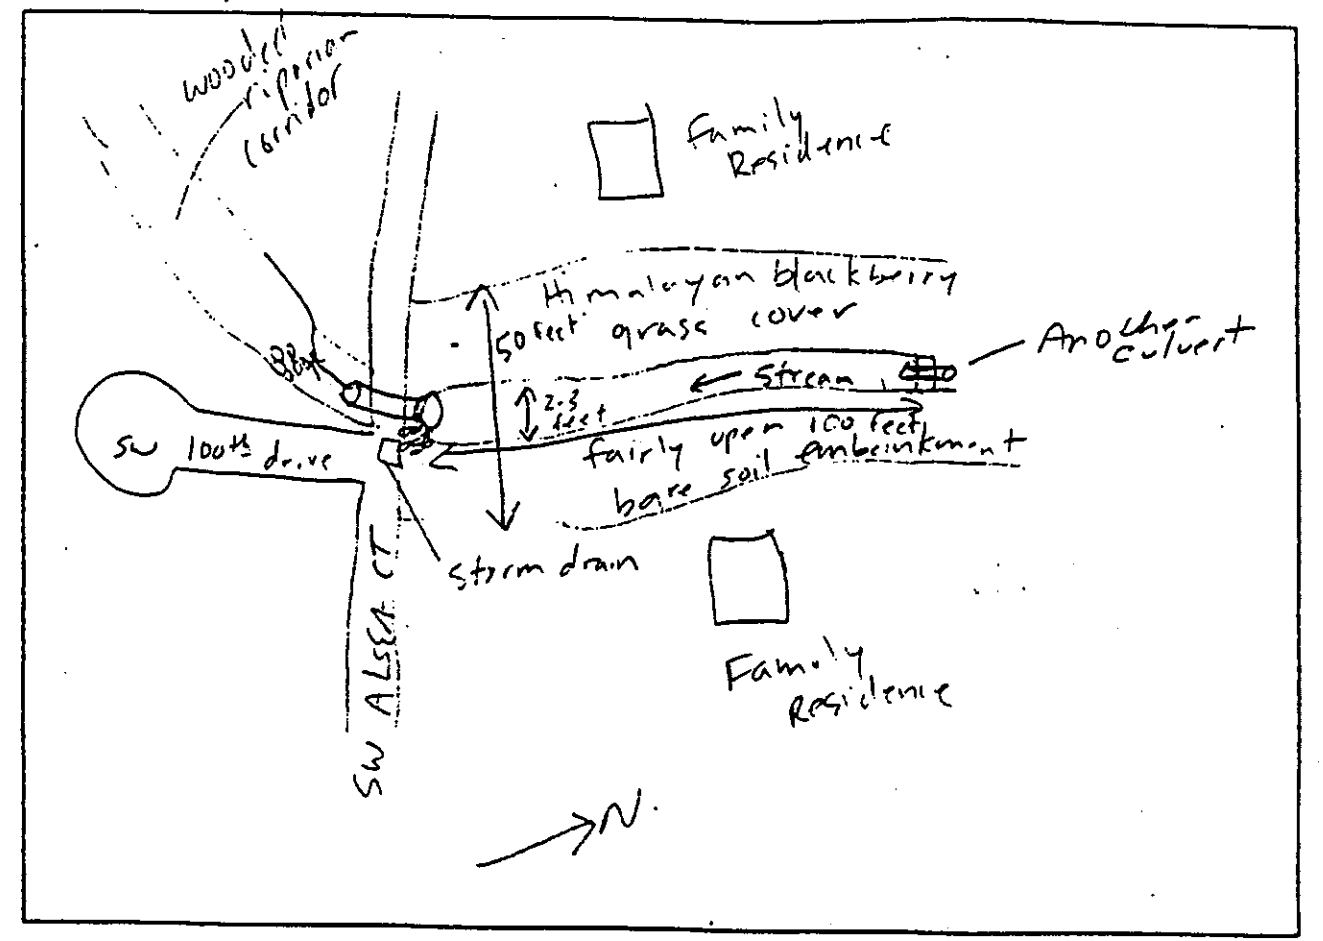 wooded
riparian
corridor
Family
Residence
Himalayan blackberry
50 feet grass cover
Another
culvert
Stream
2-3
feet
SW 100th drive
fairly open 100 feet
bare soil embankment
Storm drain
SW ALSEA CT
Family
Residence
N